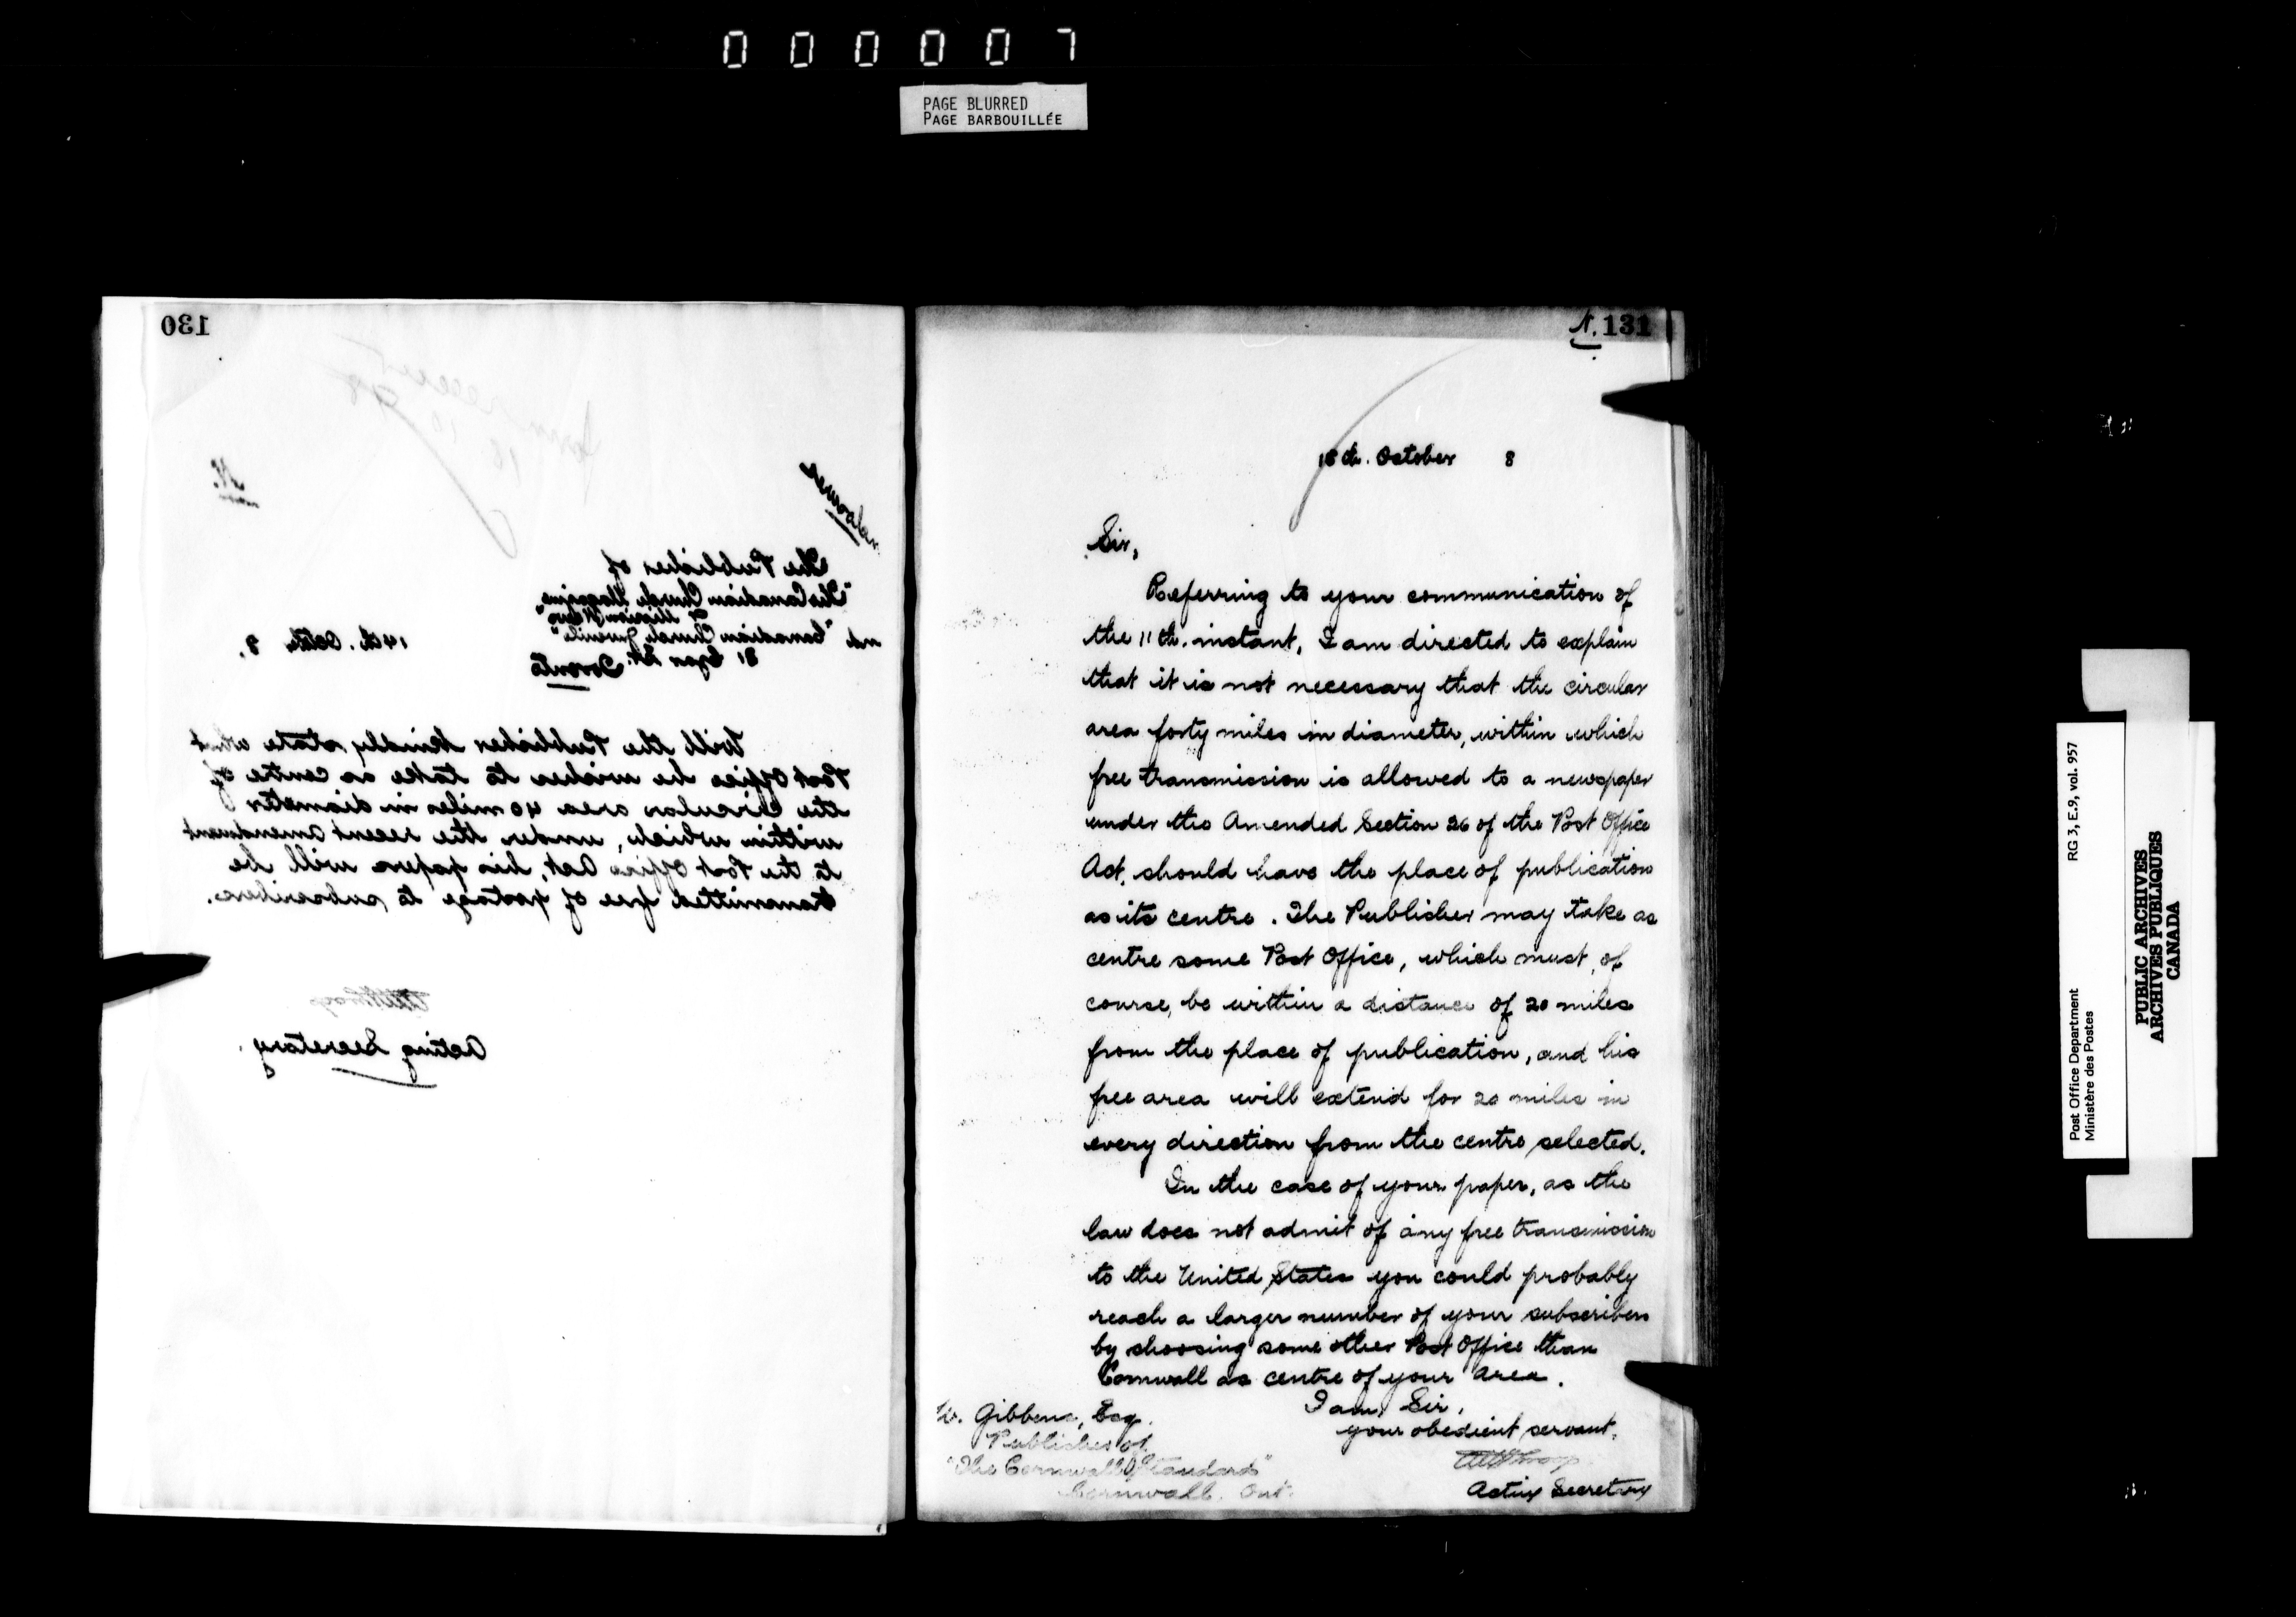 000007
PAGE BLURRED
PAGE BARBOUILLÉE
130
N.
Answered
The Publisher of
"The Canadian Church Magazine
& Mission News"
and "Canadian Church Juvenile"
Toronto
14th. Octbr 8.
Will the Publisher kindly state what
Post Office he wishes to take as centre of
the circular area 40 miles in diameter
within which, under the recent amendment
to the Post Office Act, his papers will be
transmitted free of postage to subscribers.
Acting Secretary.
N. 131
18th. October 8
Sir,
Referring to your communication of
the 11th. instant, I am directed to explain
that it is not necessary that the circular
area forty miles in diameter, within which
free transmission is allowed to a newspaper
under the Amended Section 26 of the Post Office
Act, should have the place of publication
as its centre. The Publisher may take as
centre some Post Office, which must, of
course, be within a distance of 20 miles
from the place of publication, and his
free area will extend for 20 miles in
every direction from the centre selected.
In the case of your paper, as the
law does not admit of any free transmission
to the United States you could probably
reach a larger number of your subscribers
by choosing some other Post Office than
Cornwall as centre of your area.
I am, Sir,
your obedient servant,
Acting Secretary
W. Gibbens, Esq.
Publisher of
"The Cornwall Standard"
Cornwall. Ont.
Post Office Department
Ministère des Postes
RG 3, E.9, vol. 957
PUBLIC ARCHIVES
ARCHIVES PUBLIQUES
CANADA